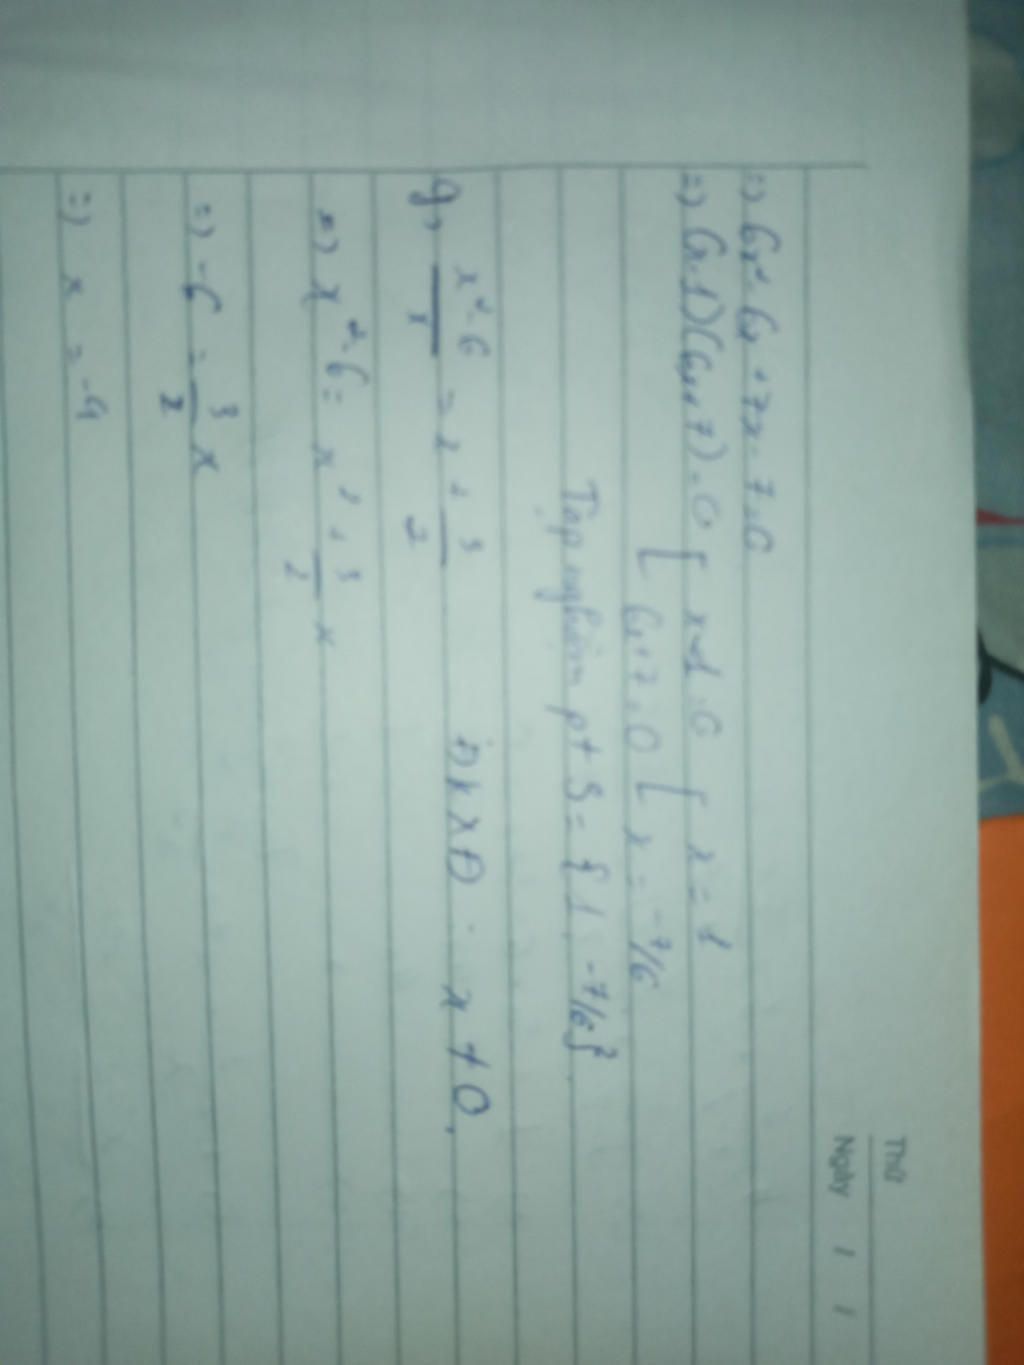 Thứ
Ngày / /
=> 6x² - 6x + 7x - 7 = 0
=> (x-1)(6x+7) = 0 [ x-1 = 0 [ x = 1
[ 6x+7 = 0 [ x = -7/6
Tập nghiệm pt S = { 1, -7/6 }
g, x²-6/x = x + 3/2 ĐKXĐ: x ≠ 0.
=> x²-6 = x² + 3/2 x
=> -6 = 3/2 x
=> x = -4